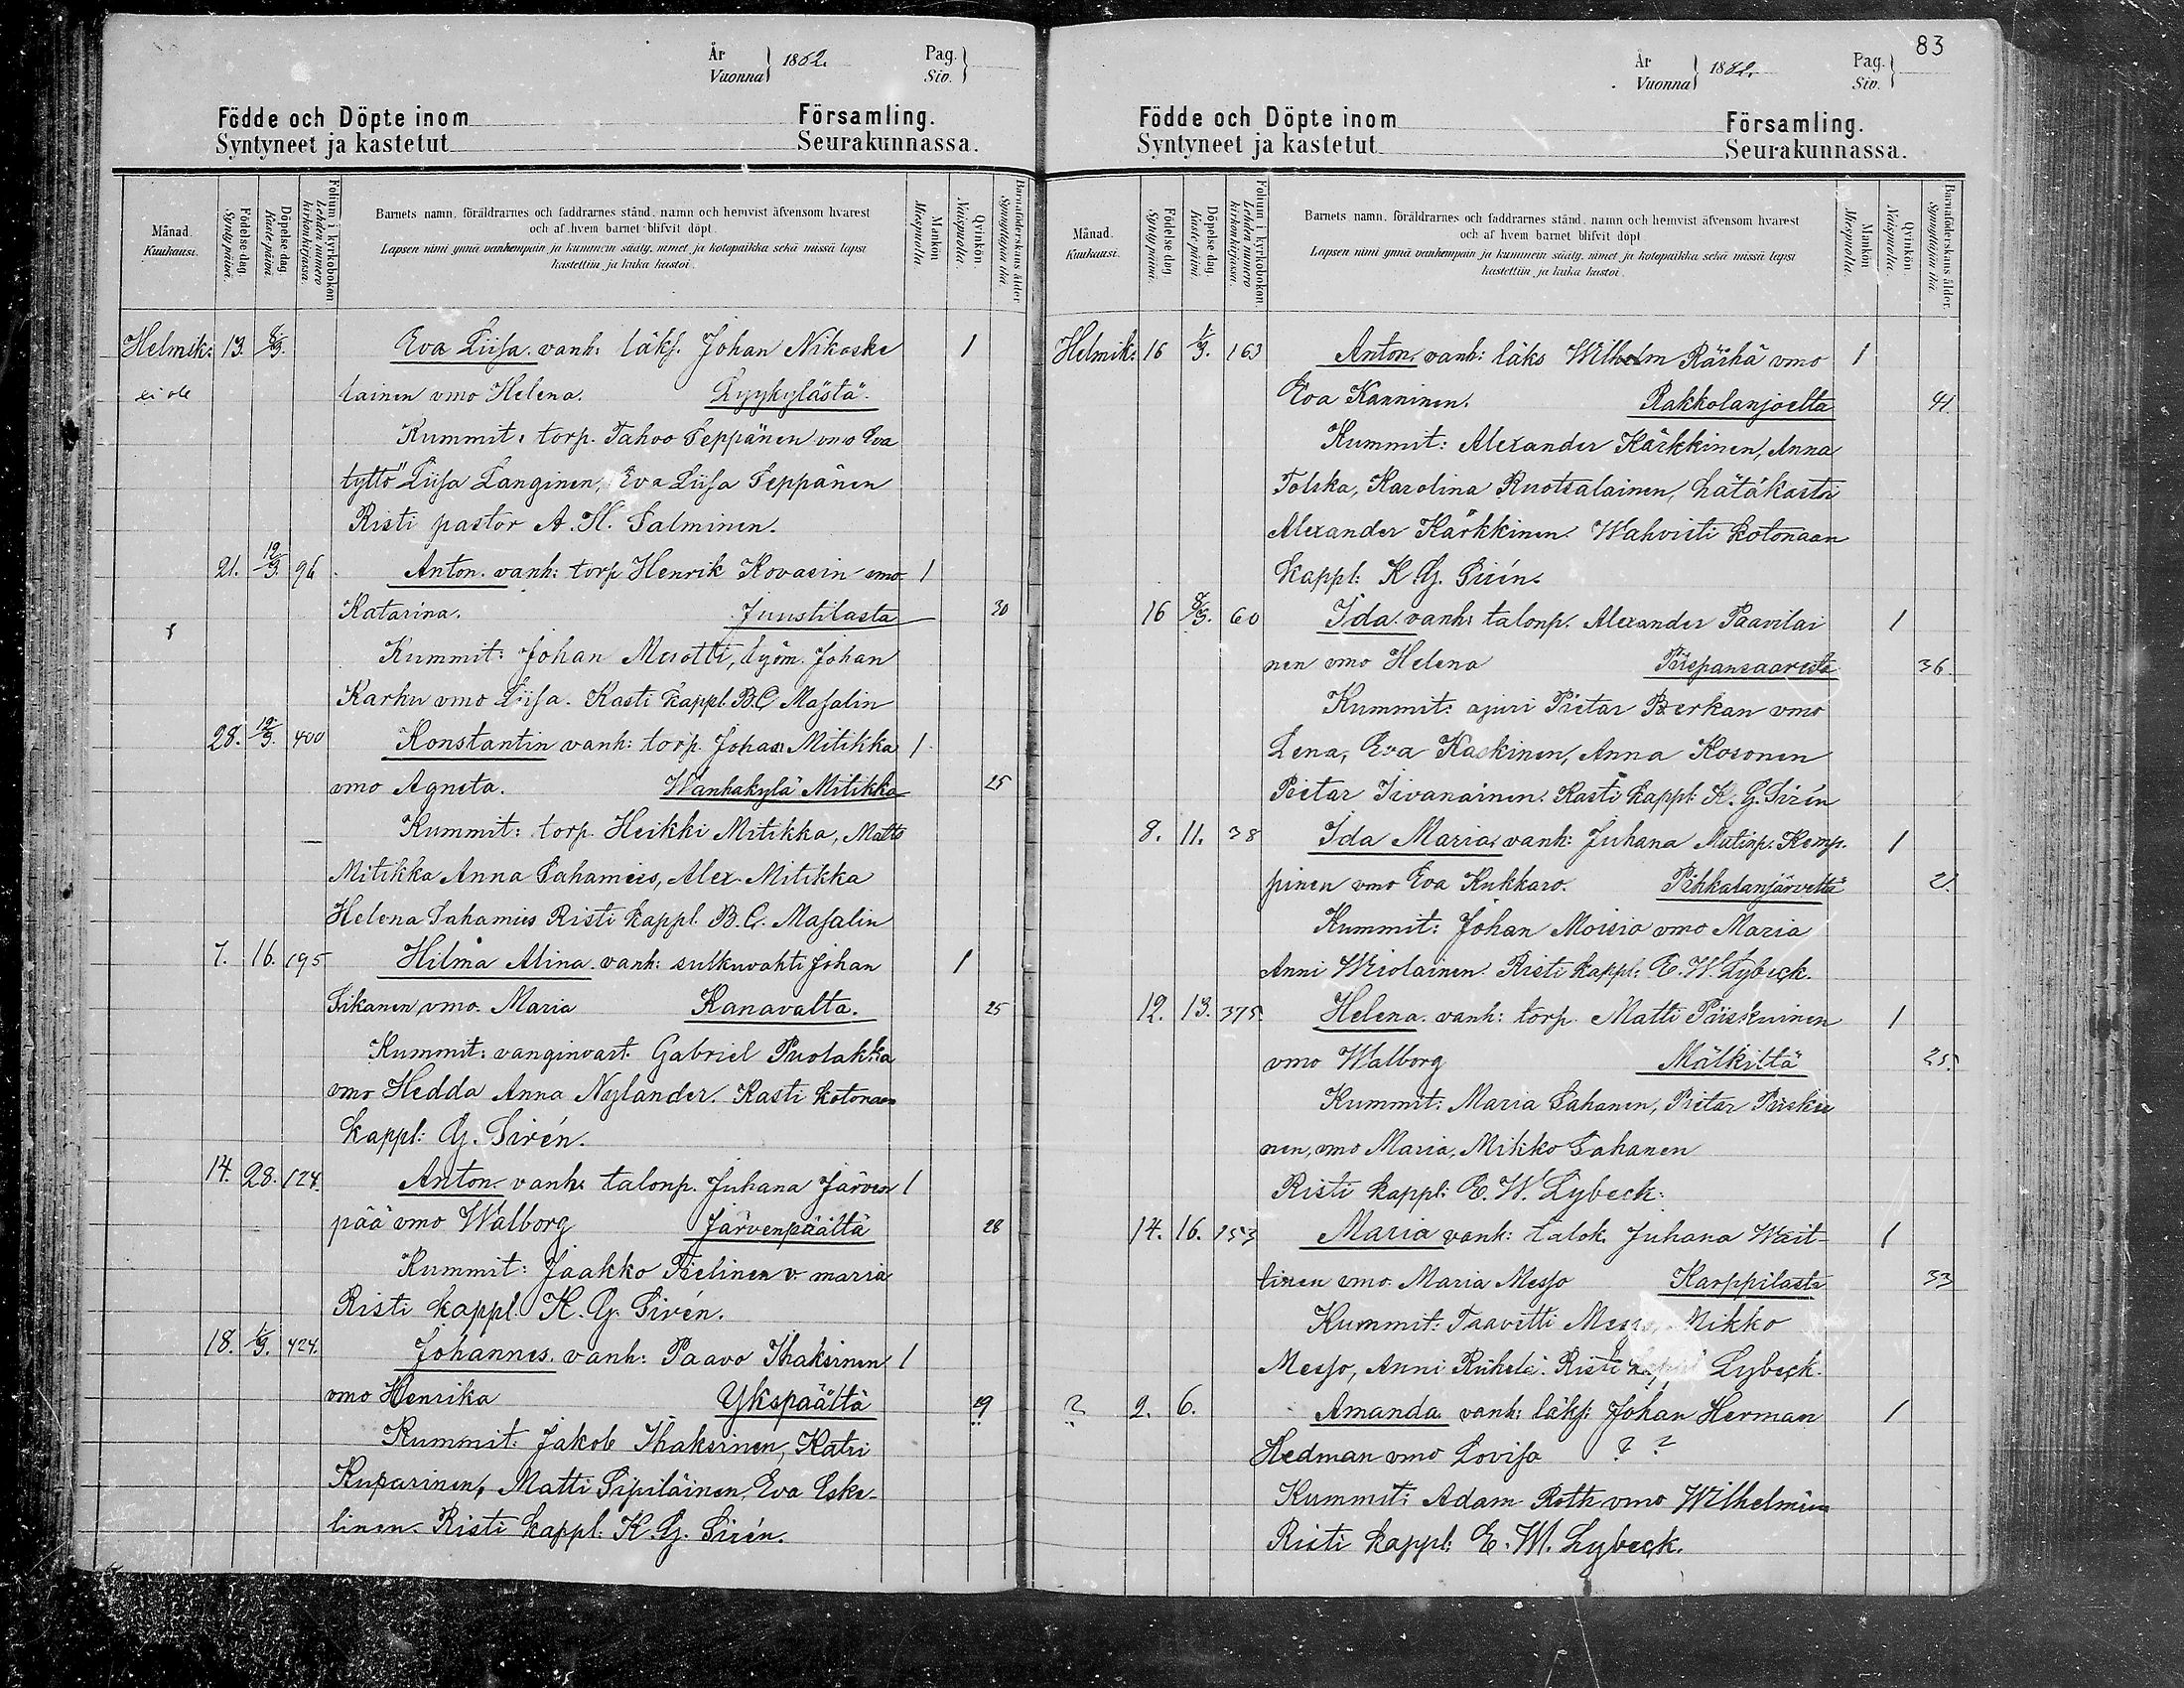 År
Vuonna } 1862.
Pag.
Siv. }
Födde och Döpte inom Församling.
Syntyneet ja kastetut Seurakunnassa.
Månad.
Kuukausi.
Födelse dag.
Synty päivä.
Döpelse dag.
Kaste päivä.
Folium i kyrkobokon.
Lehden numero kirkonkirjassa.
Barnets namn, föräldrarnes och faddrarnes stånd, namn och hemvist äfvensom hvarest
och af hvem barnet blifvit döpt.
Lapsen nimi ynnä vanhempain ja kummein sääty, nimet ja kotopaikka sekä missä lapsi
kastettiin ja kuka kastoi.
Mankön
Miespuolta.
Qvinkön.
Naispuolta.
Barnaföderskans ålder
Synnyttäjän ikä.
Helmik: 13. 8/3. Eva Liisa. vanh: läks. Johan Nikoske 1
ei ole tainen vmo Helena. Lyykylästä.
Kummit: torp. Tahvo Seppänen vmo Eva
tyttö Liisa Langinen, Eva Liisa Seppänen
Risti pastor A. H. Salminen.
21. 12/3. 96 Anton. vanh: torp Henrik Kovasin vmo 1
Katarina. Juustilasta 30
Kummit: Johan Mesotti, työm. Johan
Karhu vmo Liisa. Kasti kappl. B.C. Masalin
28. 12/3. 400 Konstantin vanh: torp. Johan Mitikka 1
vmo Agneta. Wanhakylä Mitikka 25
Kummit: torp. Heikki Mitikka, Matts
Mitikka Anna Sahamies, Alex. Mitikka
Helena Sahamies Risti kappl. B.C. Masalin
7. 16. 195 Hilma Alina. vanh: sulkuvahti Johan 1
Sikanen vmo. Maria Kanavalta. 25
Kummit: vanginvart. Gabriel Puolakka
vmo Hedda Anna Nylander. Kasti kotonaan
kappl: G. Sirén.
14. 28. 124. Anton. vanh: talonp. Juhana Järven 1
pää vmo Walborg Järvenpäältä 28
Kummit: Jaakko Tielinen v. maria
Risti kappl. K. G. Sirén.
18. 1/3. 424. Johannes. vanh: Paavo Ihaksinen 1
vmo Henrika Ykspäältä 29
Kummit: Jakob Ihaksinen, Katri
Kuparinen, Matti Sipiläinen, Eva Eske-
linen. Risti kappl. K. G. Sirén.
83
År
Vuonna } 1882.
Pag.
Siv. }
Födde och Döpte inom Församling.
Syntyneet ja kastetut Seurakunnassa.
Månad.
Kuukausi.
Födelse dag.
Synty päivä.
Döpelse dag.
Kaste päivä.
Folium i kyrkobokon.
Lehden numero kirkonkirjassa.
Barnets namn, föräldrarnes och faddrarnes stånd, namn och hemvist äfvensom hvarest
och af hvem barnet blifvit döpt.
Lapsen nimi ynnä vanhempain ja kummein sääty, nimet ja kotopaikka sekä missä lapsi
kastettiin ja kuka kastoi.
Mankön
Miespuolta.
Qvinkön.
Naispuolta.
Barnaföderskans ålder.
Synnyttäjän ikä.
Helmik: 16 1/3. 163 Anton. vanh: läks Wilhelm Räihä vmo 1
Eva Kanninen. Rakkolanjoelta 41.
Kummit: Alexander Kärkkinen, Anna
Tolska, Karolina Ruotsalainen, hätäkastoi
Alexander Kärkkinen. Wahvisti kotonaan
kappl: K G. Sirén.
16 8/3. 60 Ida. vanh: talonp. Alexander Paavilai 1
nen vmo Helena Piispansaaresta 36.
Kummit: ajuri Pietar Perkan vmo
Lena, Eva Kaskinen, Anna Kosonen
Pietar Iivanainen. Kasti kappl. K. G. Sirén
8. 11. 38 Ida Maria, vanh: Juhana Mutinp. Kemp. 1
pinen vmo Eva Kukkaro. Pihkalanjärveltä 21.
Kummit: Johan Moisio vmo Maria
Anni Wiolainen. Risti kappl: E. W. Lybeck.
12. 13. 375. Helena. vanh: torp. Matti Päiskuinen 1
vmo Walborg Mälkiltä 25.
Kummit: Maria Sahanen, Pietar Päiskui
nen, vmo Maria, Mikko Sahanen
Risti kappl: E. W. Lybeck.
14. 16. 153 Maria vanh: talok. Juhana Wait- 1
tinen vmo. Maria Messo Karppilasta 33
Kummit: Taavitti Messo, Mikko
Messo, Anni Riihelä. Risti kappl Lybeck.
? 2. 6. Amanda vanh: läks: Johan Herman 1
Hedman vmo Lovisa ? ?
Kummit: Adam Roth vmo Wilhelmina
Risti kappl: E. W. Lybeck.